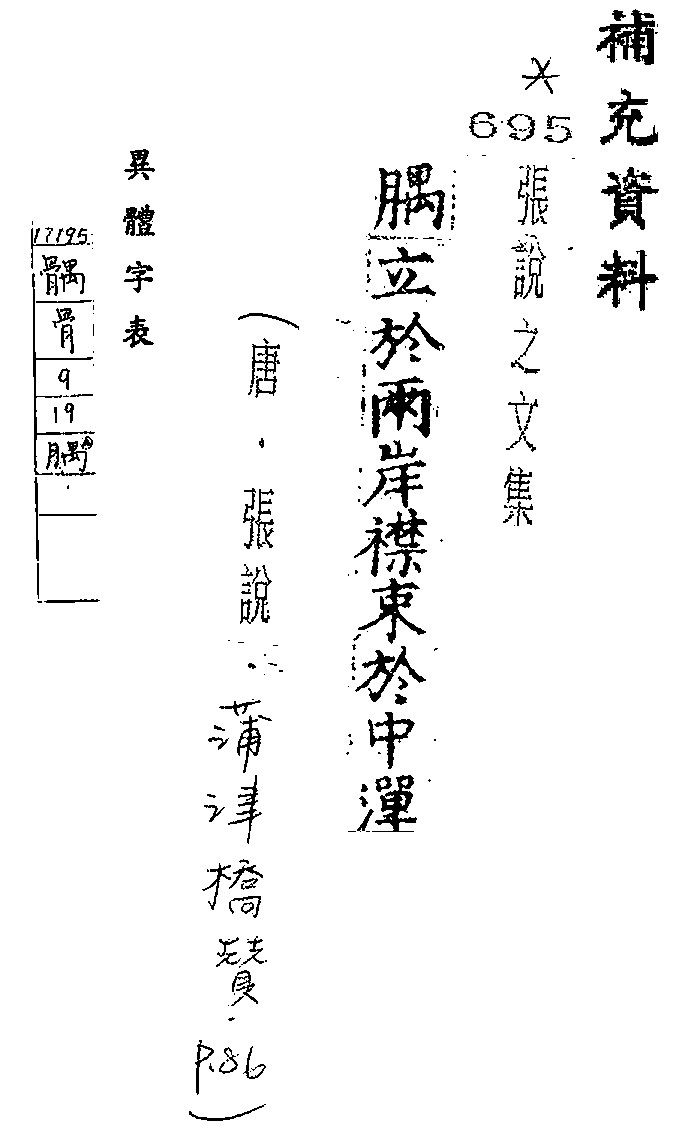 補充資料
*
695
張說之文集
腢立於兩岸襟束於中潬
(唐．張說．蒲津橋贊．P.86)
異體字表
17195
髃
骨
9
19
腢